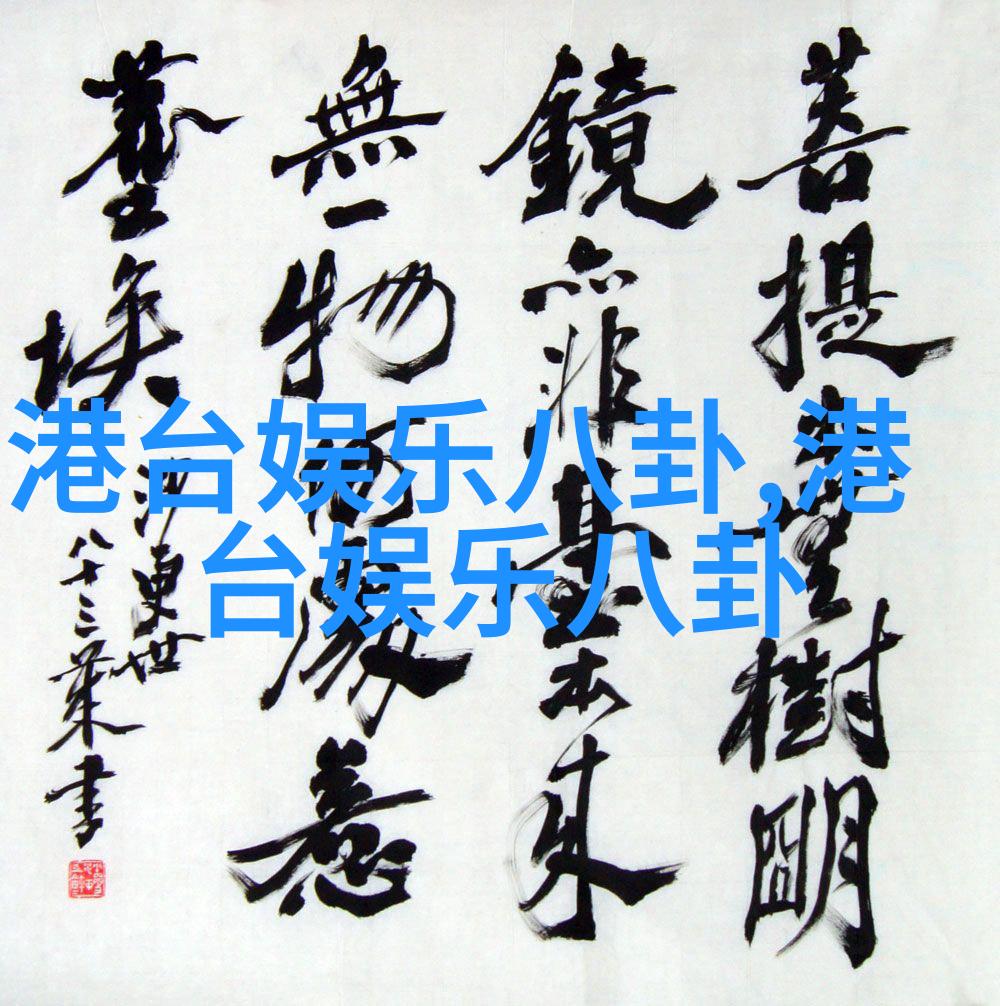 菩提本無樹明
鏡亦非臺本来
無一物何處惹
塵埃
沙更世
八十三葉書
港台娱乐八卦,港
台娱乐八卦